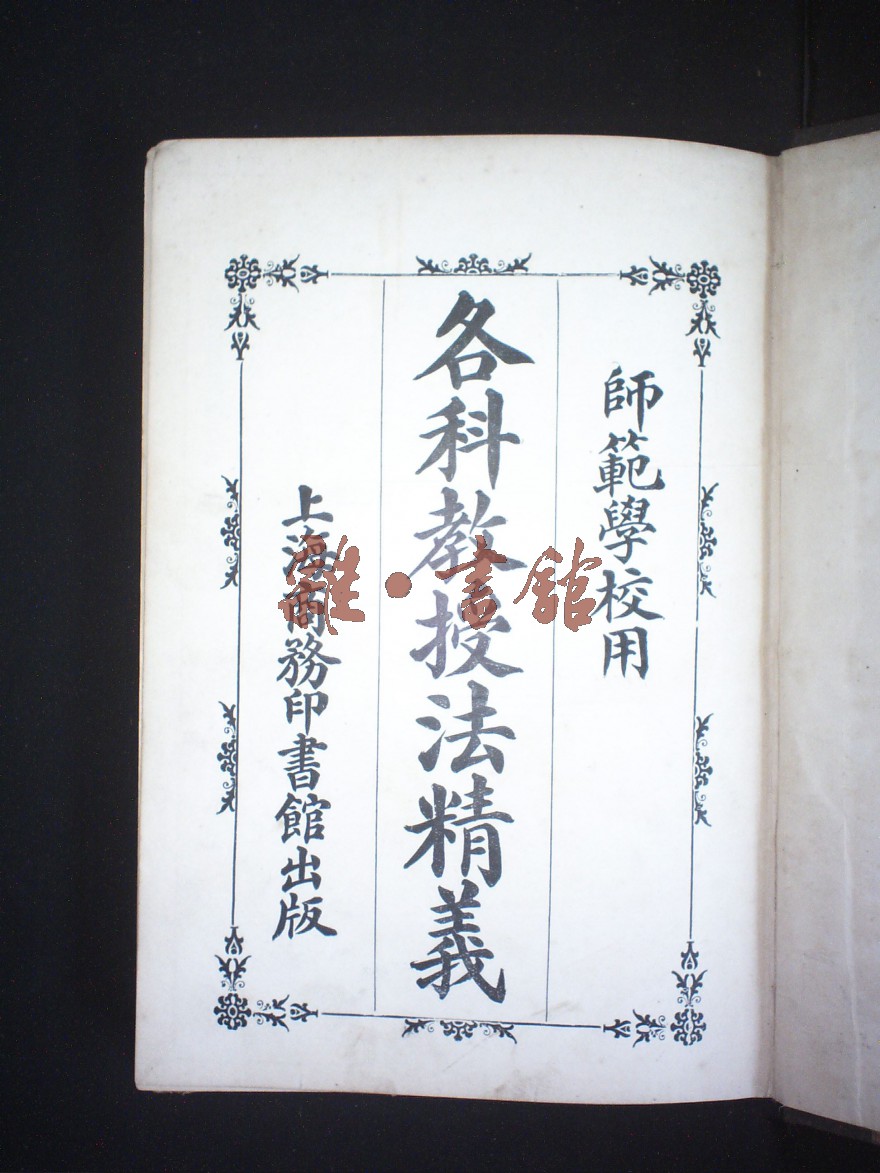 師範學校用
各科教授法精義
上海商務印書館出版
雕·書館